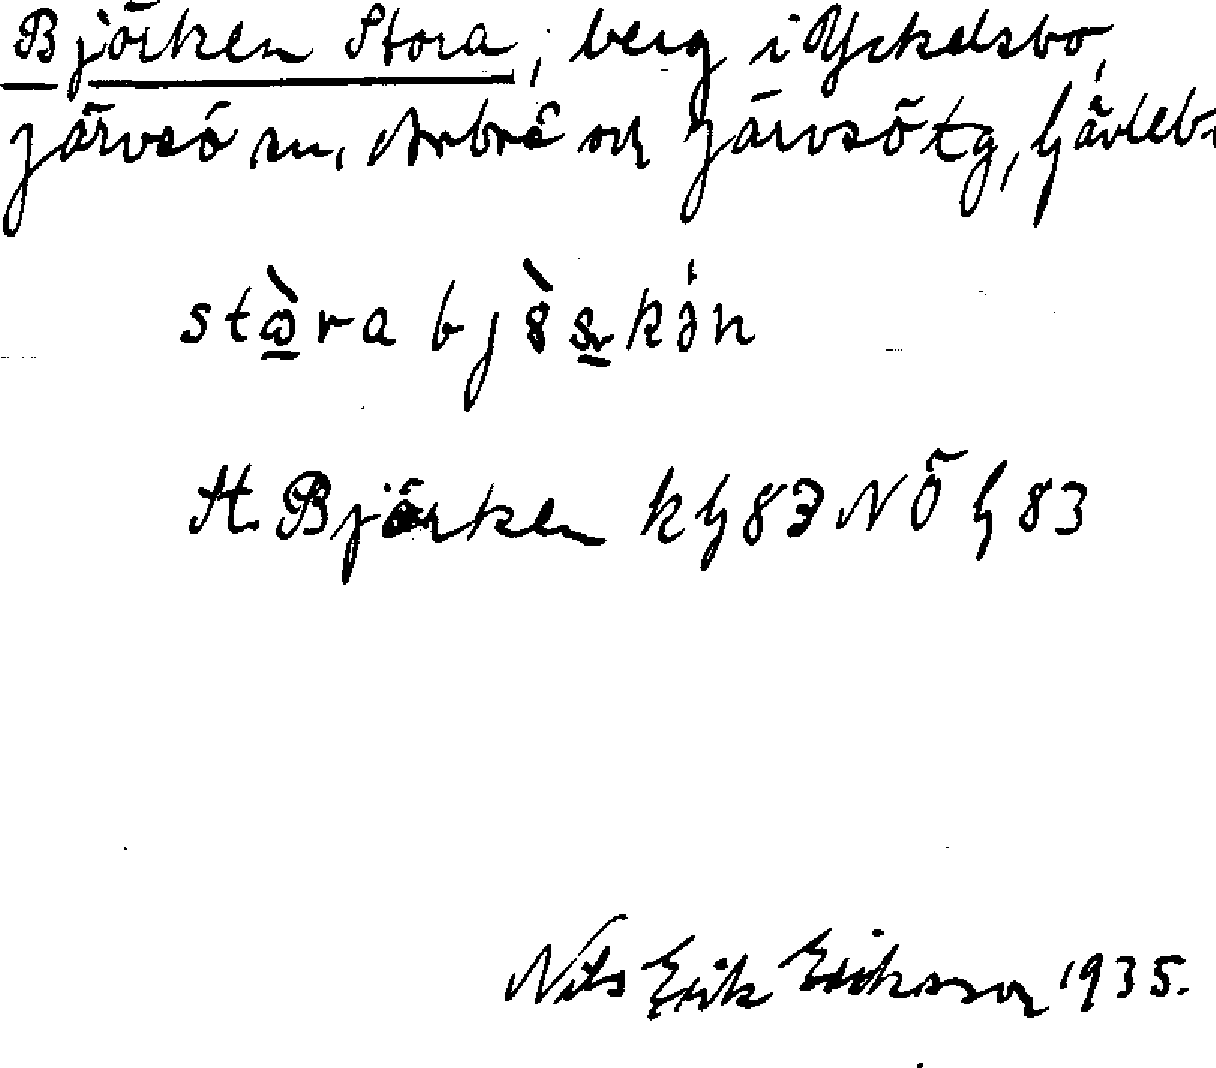 Björken Stora, berg i Yckelsbo,
Järvsö sn, Arbrå och Järvsö tg, Gävleb
stòra bjòrkən
St. Björken k G 83 NÖ G 83
Nils Erik Eriksson 1935.